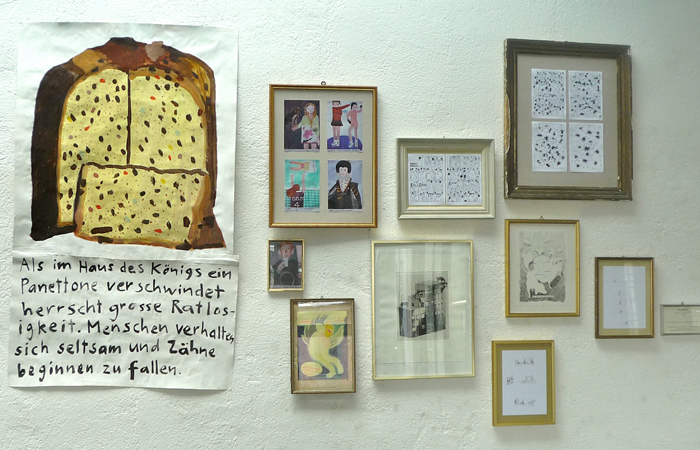 Als im Haus des Königs ein
Panettone verschwindet
herrscht grosse Ratlos-
igkeit. Menschen verhalten
sich seltsam und Zähne
beginnen zu fallen.